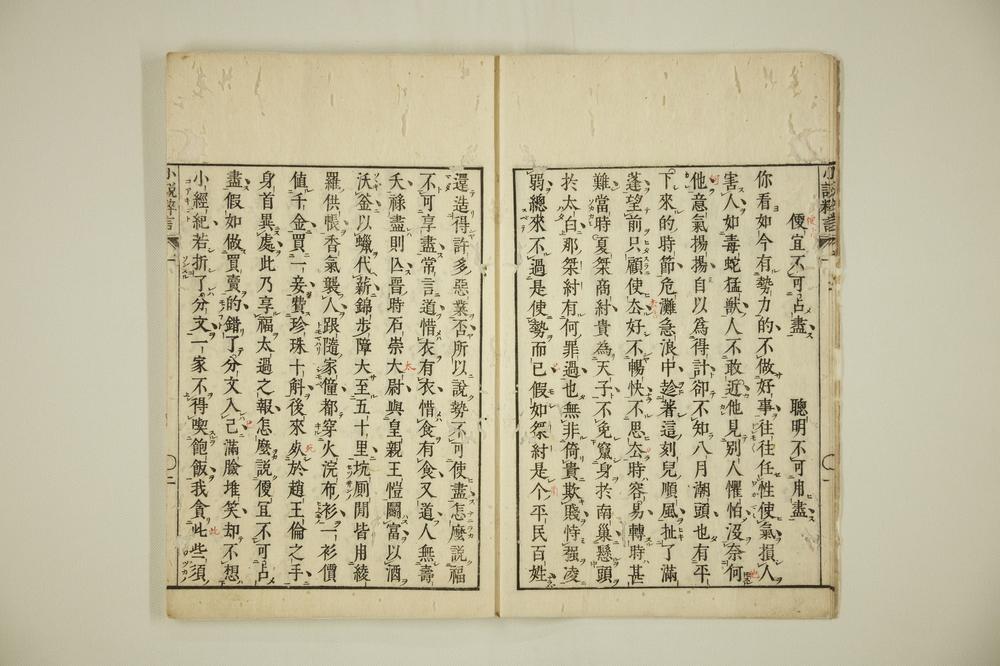 便宜不可占盡　聰明不可用盡
你看如今有勢力的不做好事往往任性使氣損人
害人如毒蛇猛獸人不敢近他見別人懼怕沒奈何
他意氣揚揚自以為得計卻不知八月潮頭也有平
下來的時節危灘急浪中趁著這刻兒順風扯了滿
蓬望前只顧使去好不暢快不思去時容易轉時甚
難當時夏桀商紂貴為天子不免竄身於南巢懸頭
於太白那桀紂有何罪過也無非倚貴欺賤恃强凌
弱總來不過是使勢而已假如桀紂是个平民百姓
還造得許多惡業否所以說勢不可使盡怎麼說福
不可享盡常言道惜衣有衣惜食有食又道人無壽
夭祿盡則亾晋時石崇大尉與皇親王愷鬭富以酒
沃釜以蠟代薪錦步障大至五十里坑厠間皆用綾
羅供帳香氣襲人跟隨家僮都穿火浣布衫一衫價
值千金買一妾費珍珠十斛後來死於趙王倫之手
身首異處此乃享福太過之報怎麼說便宜不可占
盡假如做買賣的錯了分文入己滿臉堆笑却不想
小經紀若折了分文一家不得喫飽飯我貪此些須
小說粹言
小說粹言